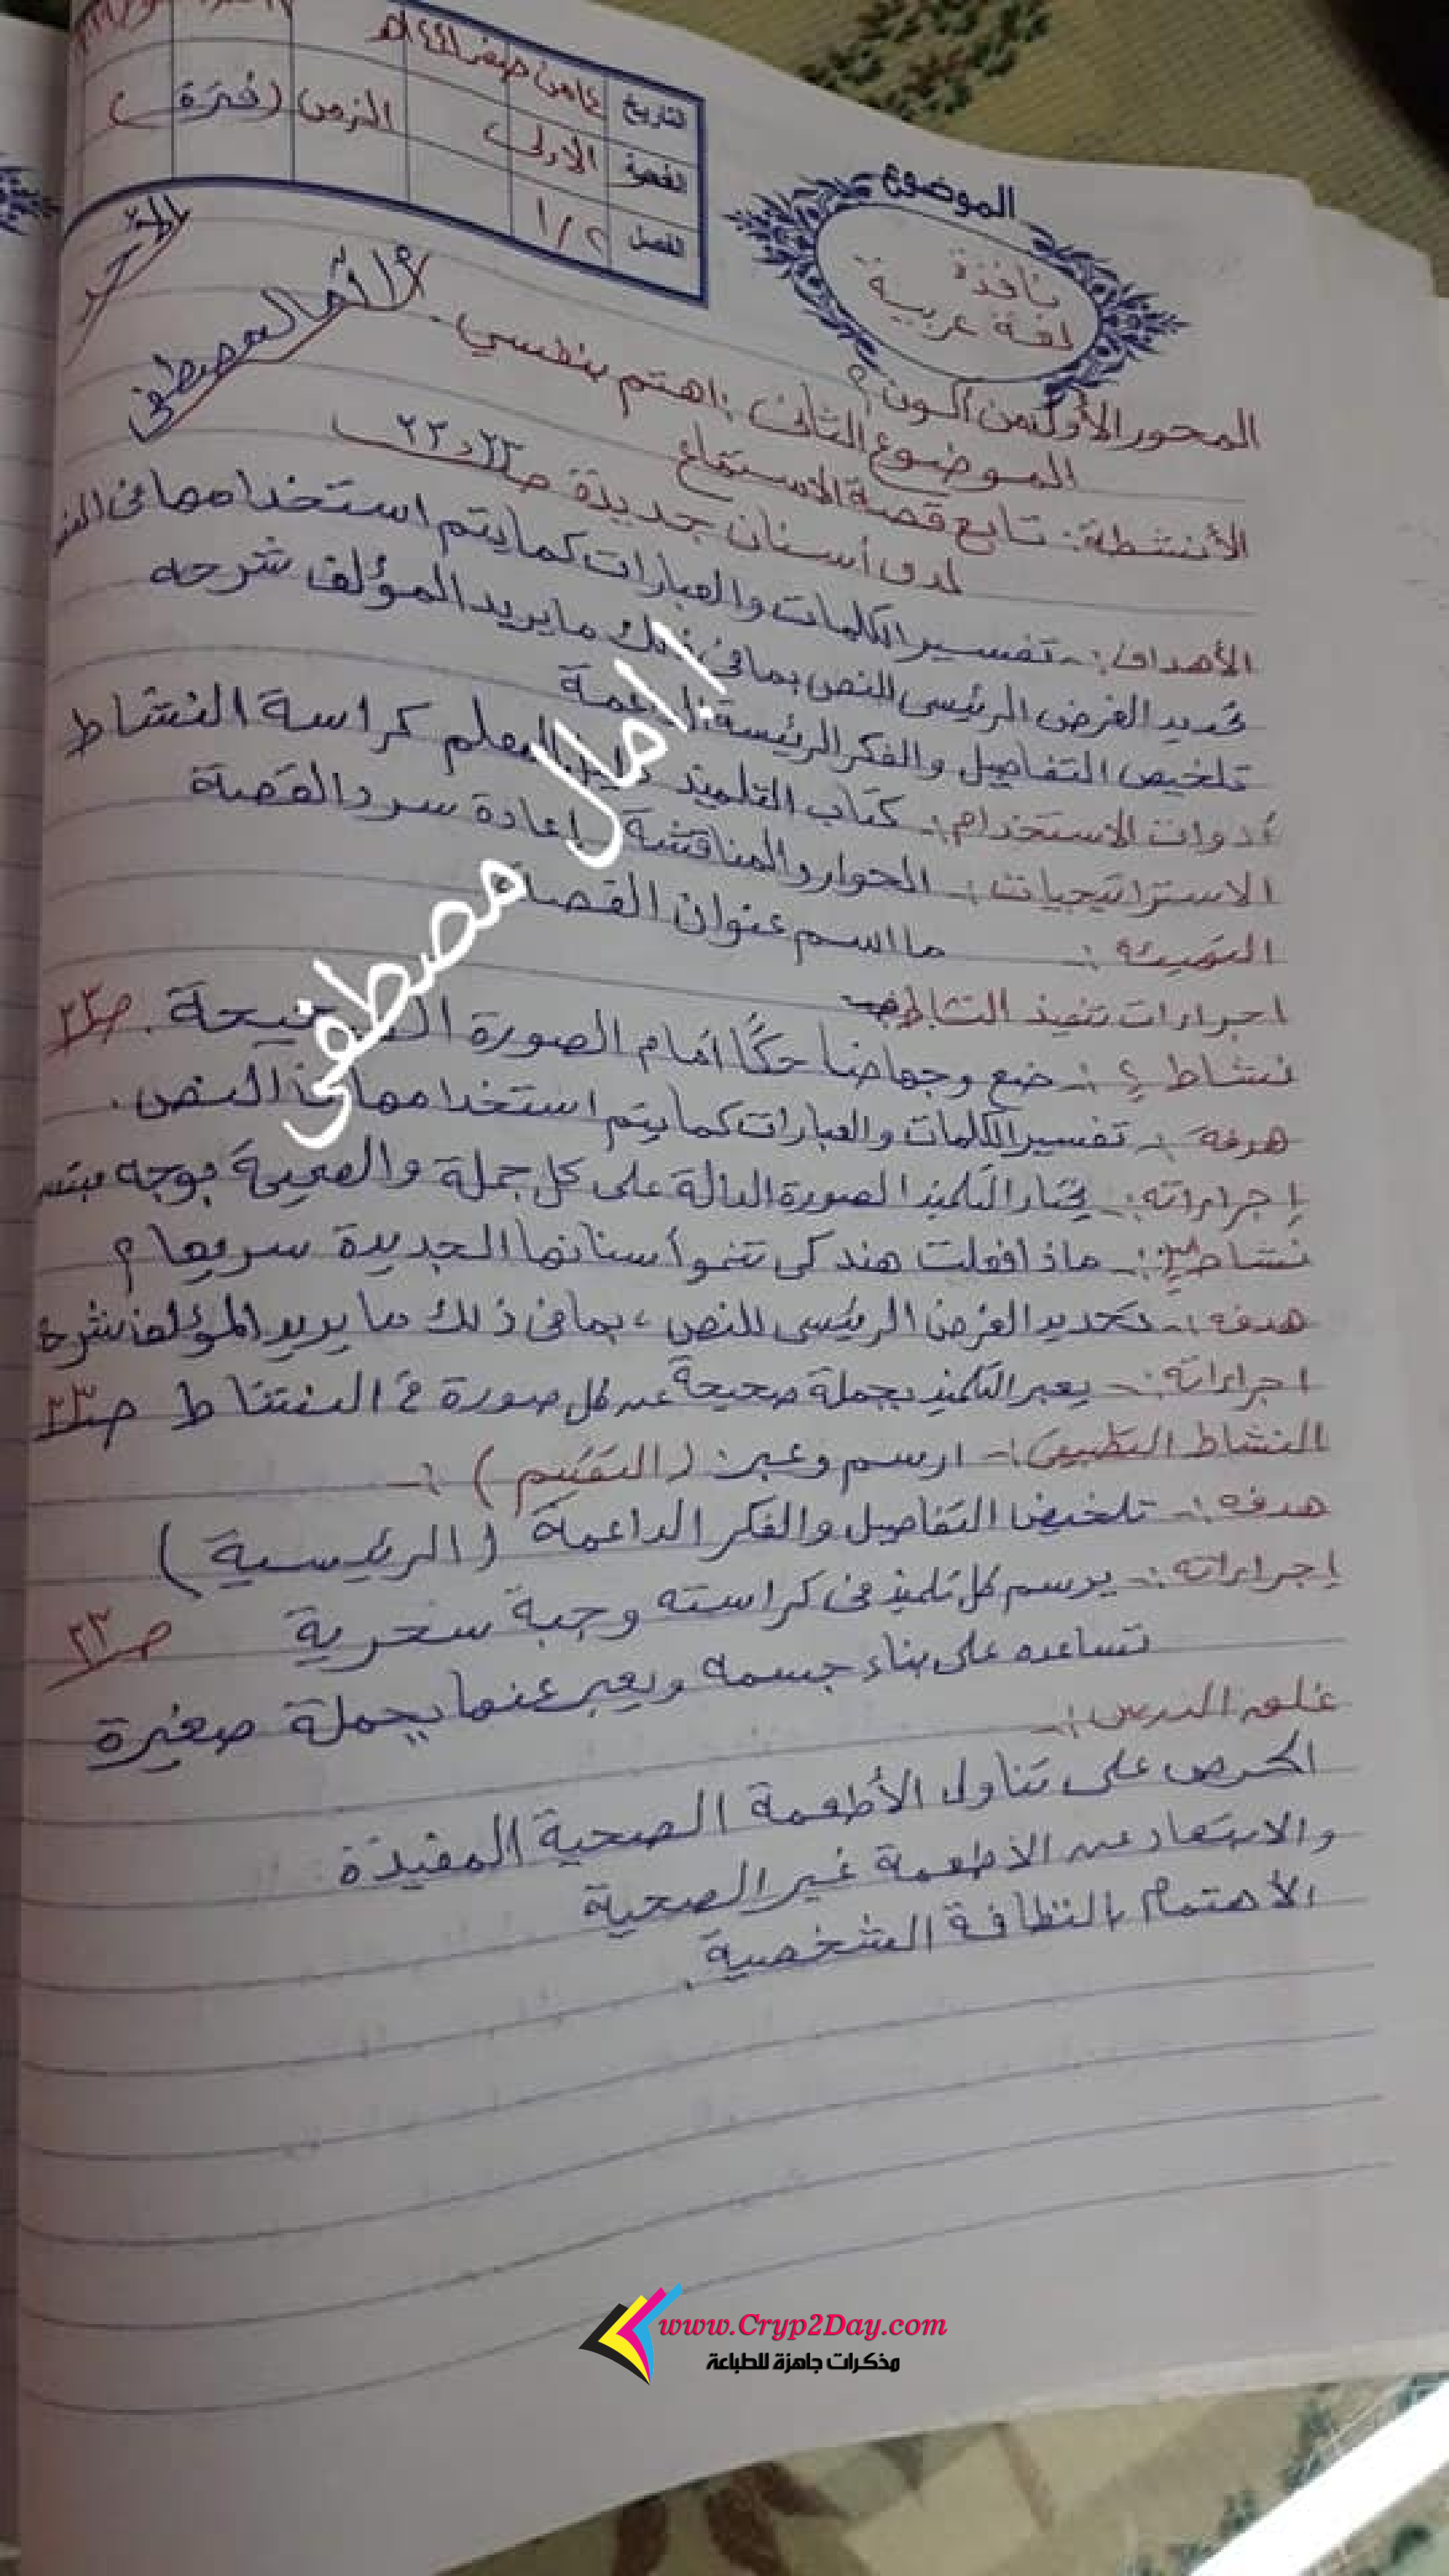 التاريخ ٤ من صفر ١٤٤١هـ
الحصة الأولى الزمن (فترة)
الفصل ١/٢
الموضوع
نافذة
لغة عربية
المحور الأول من أكون؟
الموضوع الثاني: اهتم بنفسي.
الأنشطة: تابع قصة الاستماع
لدى أسنان جديدة صـ٢٢، ٢٣
الأهداف:- تفسير الكلمات والعبارات كما يتم استخدامها فى النص
تحديد الغرض الرئيسى للنص بما فى ذلك ما يريد المؤلف شرحه
تلخيص التفاصيل والفكر الرئيسة الداعمة
أدوات الاستخدام:- كتاب التلميذ دليل المعلم كراسة النشاط
الاستراتيجيات:- الحوار والمناقشة إعادة سرد القصة
التهيئة:- ما اسم عنوان القصة
اجراءات تنفيذ النشاط
نشاط ٤:- ضع وجها ضاحكًا أمام الصورة الصحيحة. صـ٢٢
هدفه:- تفسير الكلمات والعبارات كما يتم استخدامها فى النص.
إجراءاته:- يختار التلميذ الصورة الدالة على كل جملة والصحيحة بوجه مبتسم
نشاط:- ماذا فعلت هند كى تنموأ سنانها الجديدة سريعا؟
هدفه:- تحديد الغرض الرئيسى للنص، بما فى ذلك ما يريد المؤلف شرحة
اجراءاته:- يعبر التلميذ بجملة صحيحة عن كل صورة فى النشاط صـ٢٣
النشاط التطبيقى:- ارسم وعبر: (التقييم):-
هدفه:- تلخيص التفاصيل والفكر الداعمة (الرئيسية)
إجراءاته:- يرسم كل تلميذ فى كراسته وجبة سحرية صـ٢٣
تساعده على بناء جسمه ويعبر عنها بجملة صغيرة
غلق الدرس:-
الحرص على تناول الأطعمة الصحية المفيدة
والابتعاد عن الأطعمة غير الصحية
الأهتمام بالنظافة الشخصية.
امال مصطفى
www.Cryp2Day.com
مذكرات جاهزة للطباعة